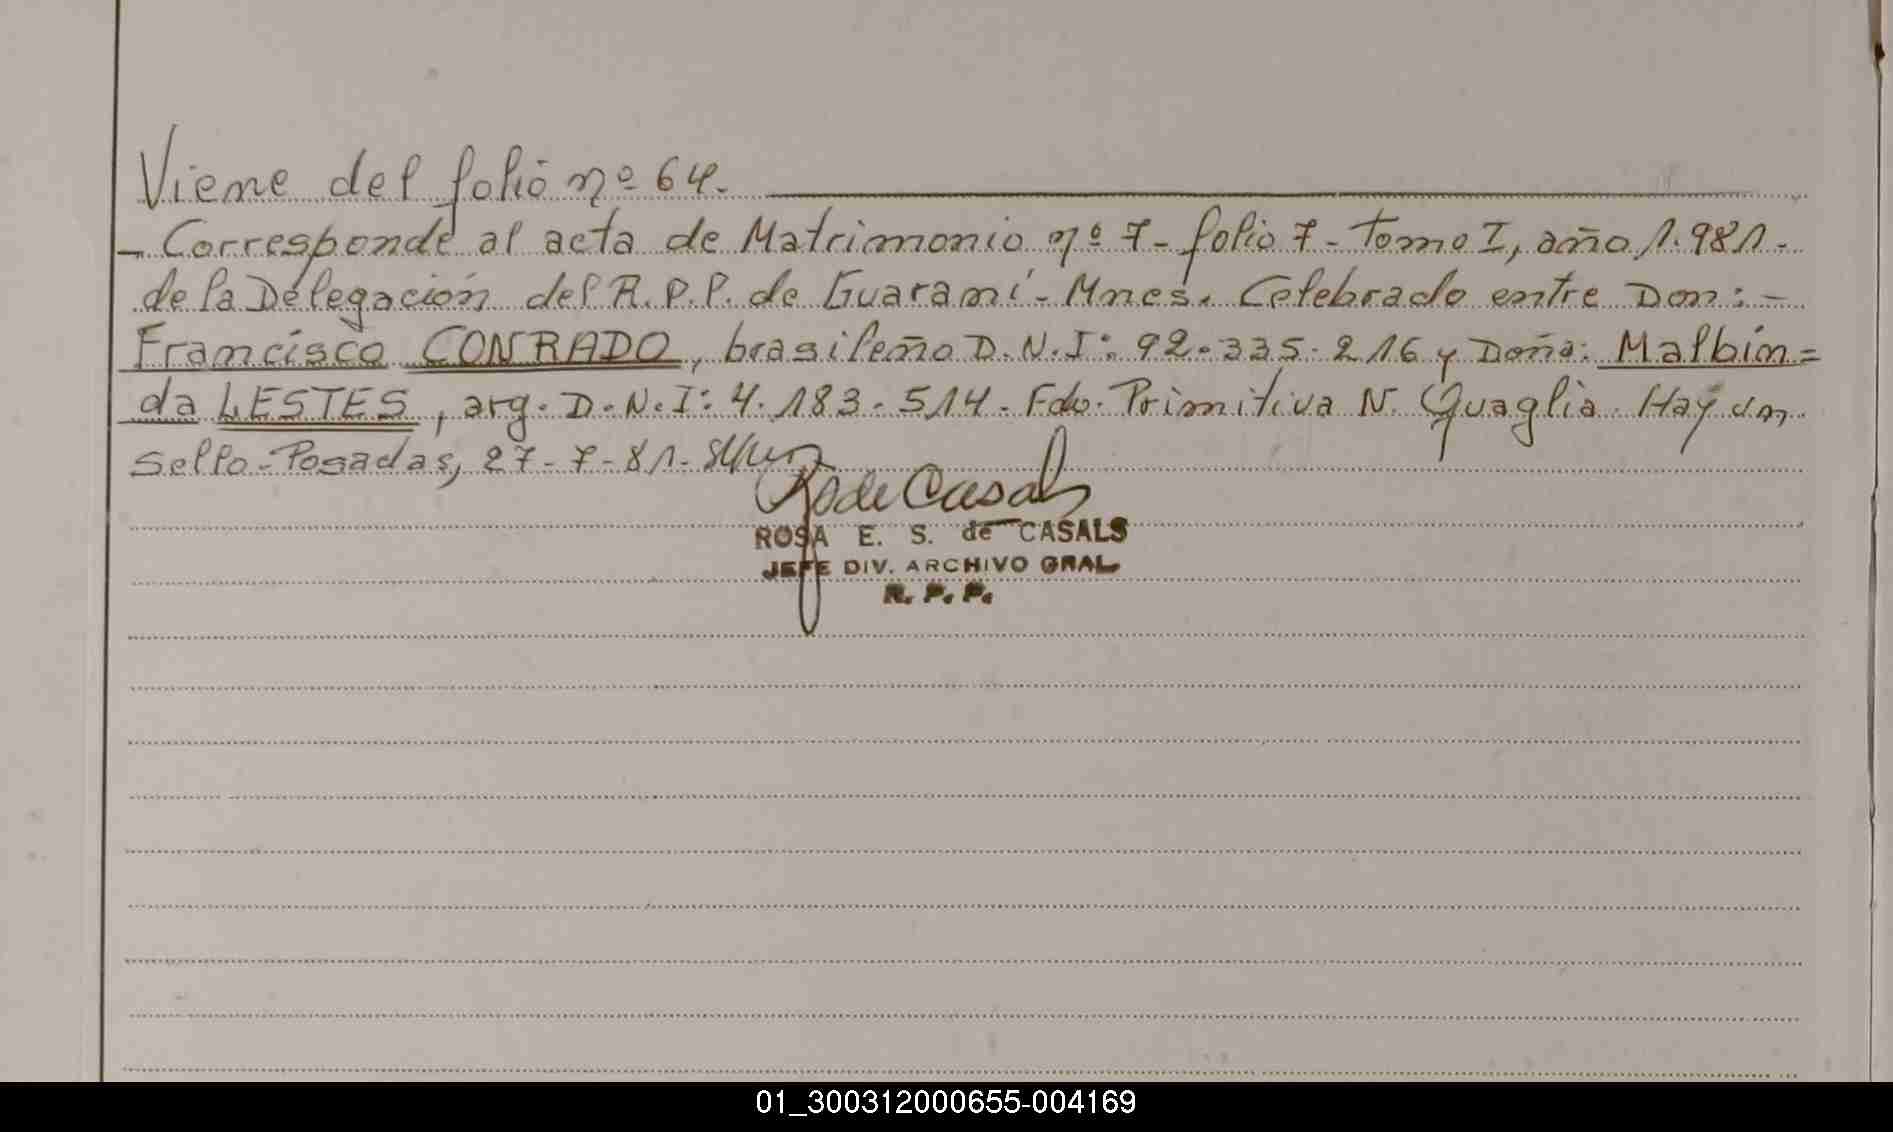 Viene del folio nº 64.
- Corresponde al acta de Matrimonio nº 7 - folio 7 - tomo I, año 1.981 -
de la Delegación del R.P.P. de Guaraní - Mnes. Celebrado entre Don: -
Francisco CONRADO, brasileño D.N.I: 92.335.216 y Doña: Malbin=
da LESTES, arg. D.N.I: 4.183.514. Fdo. Primitiva N. Quaglia. Hay un
sello - Posadas, 27-7-81-
R de Casals
ROSA E. S. de CASALS
JEFE DIV. ARCHIVO GRAL
R. P. P.
01_300312000655-004169